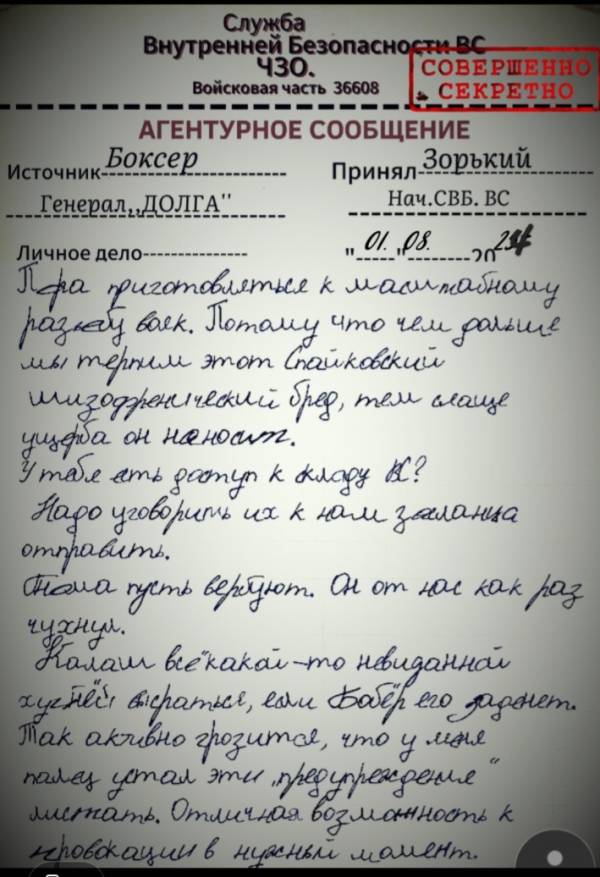 Служба
Внутренней Безопасности ВС
ЧЗО.
Войсковая часть 36608
СОВЕРШЕННО
СЕКРЕТНО
АГЕНТУРНОЕ СООБЩЕНИЕ
Источник Боксер
Принял Зорький
Генерал,,ДОЛГА"
Нач.СВБ. ВС
Личное дело
"01" 08. 20
Пора приготовляться к масштабному
разъёбу вояк. Потому что чем дальше
мы терпим этот Спайковский
шизофренический бред, тем слаще
ущерба он наносит.
У тебя есть доступ к складу ВС?
Надо уговорить их к нам засланца
отправить.
пусть вербуют. Он от нас как раз
чухнул.
Калаш всё какой-то невиданной
хуетнёй высраться, если Бобёр его заденет.
Так активно грозится, что у меня
палец устал эти „предупреждения"
листать. Отличная возможность к
провокации в нужный момент.